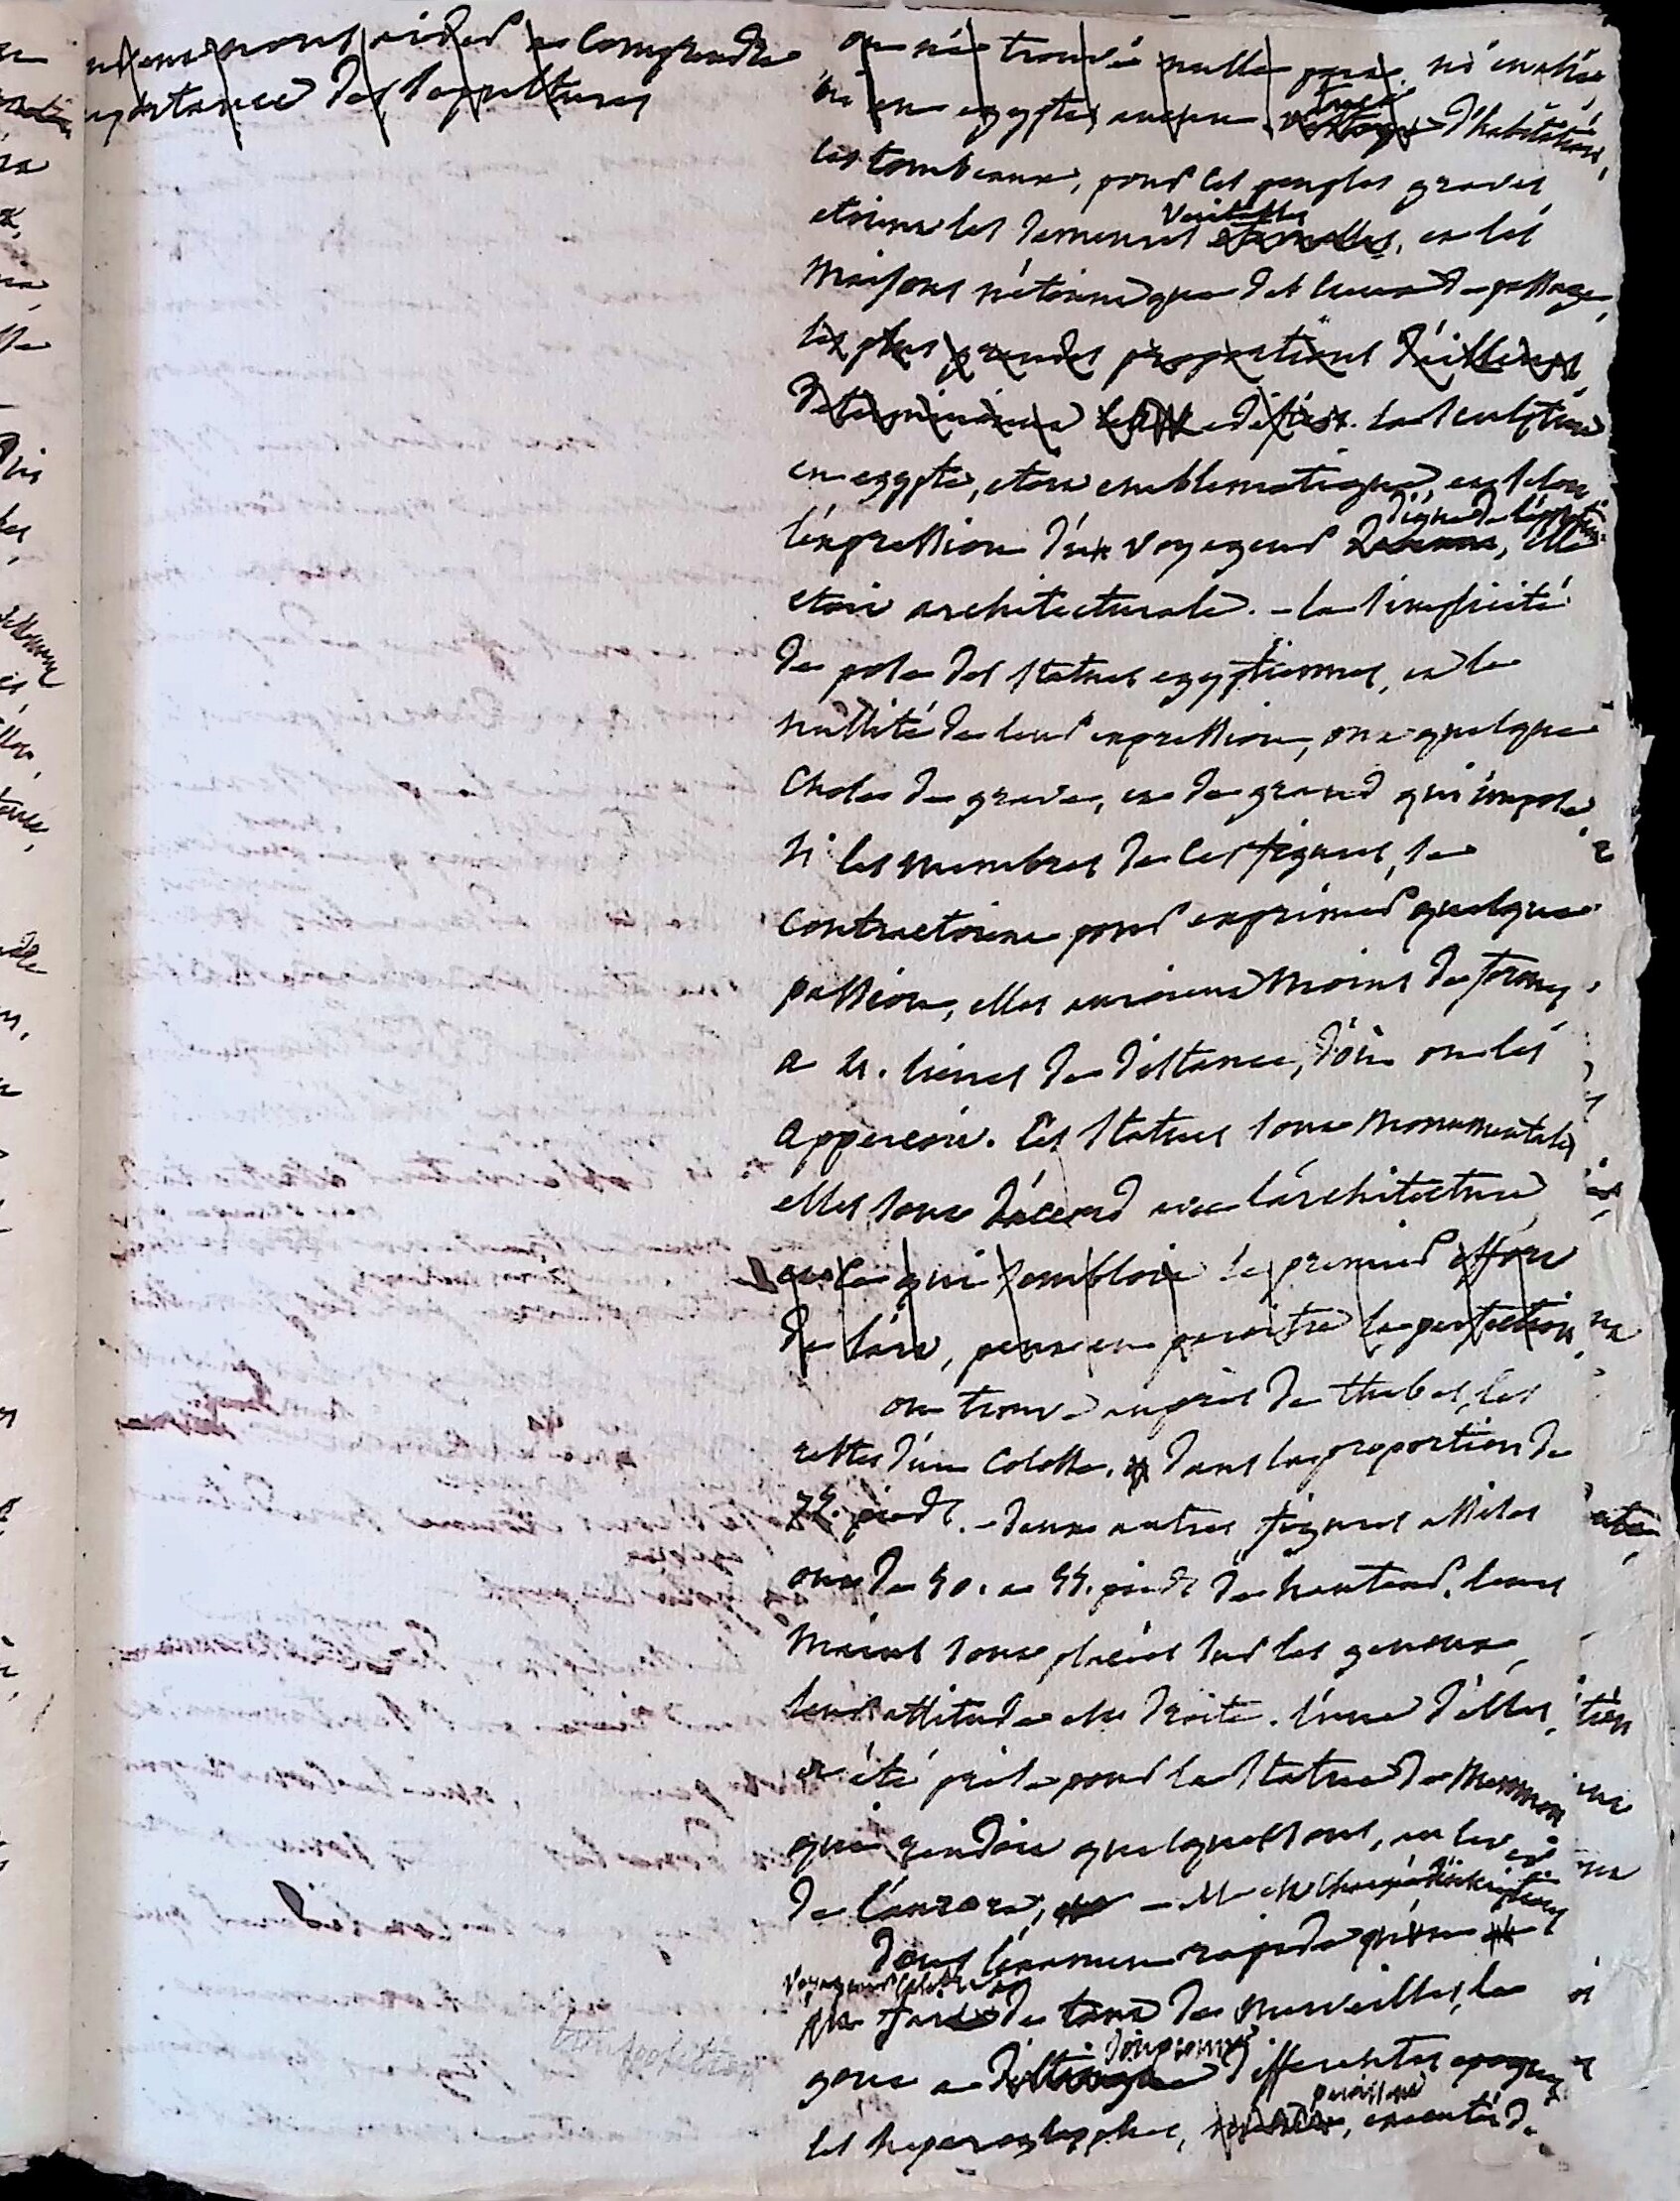 nous aider a comprendre
importance des sepultures
on ne trouve nulle part, ni
ni en egypte, aucune trace d'habitations,
les tombeaux, pour les peuples graves,
etoient les demeures veritables eternelles, et les
maisons n'etoient que des lieux de passage,
les plus grandes proportions d'ailleurs
determinoient edifices. la sculpture
en egypte, etoit emblematique, et selon
l'expression d'un voyageur digne de elle
etoit architecturale. - la simplicité
de pose des statues egyptiennes, et la
nullité de leur expression, ont quelque
chose de grave, et de grand qui impose
si les membres de ces figures, se
contractoient pour exprimer quelque
passion, elles auroient moins de formes
a 4. lieues de distance, d'où on les
apperçoit. Ces statues sont monumentales
elles sont d'accord avec l'architecture
et ce qui sembloit le premier effort
de l'art, peut en paroitre la perfection.
on trouve auprès de thebes, les
restes d'un colosse. dans la proportion de
75. pieds. - deux autres figures assises
ont de 50. a 55. pieds de hauteur. leurs
mains sont placées sur les genoux,
leur attitude est droite. l'une d'elles,
a été prise pour la statue de Memnon
qui rendoit quelques sons, au lever
de l'aurore; -
dans l'examen rapide qu'un
voyageur celebre
fait de tant de merveilles, le
gout a distingué differentes epoques
les hyeroglyphes, paroissent, executés de